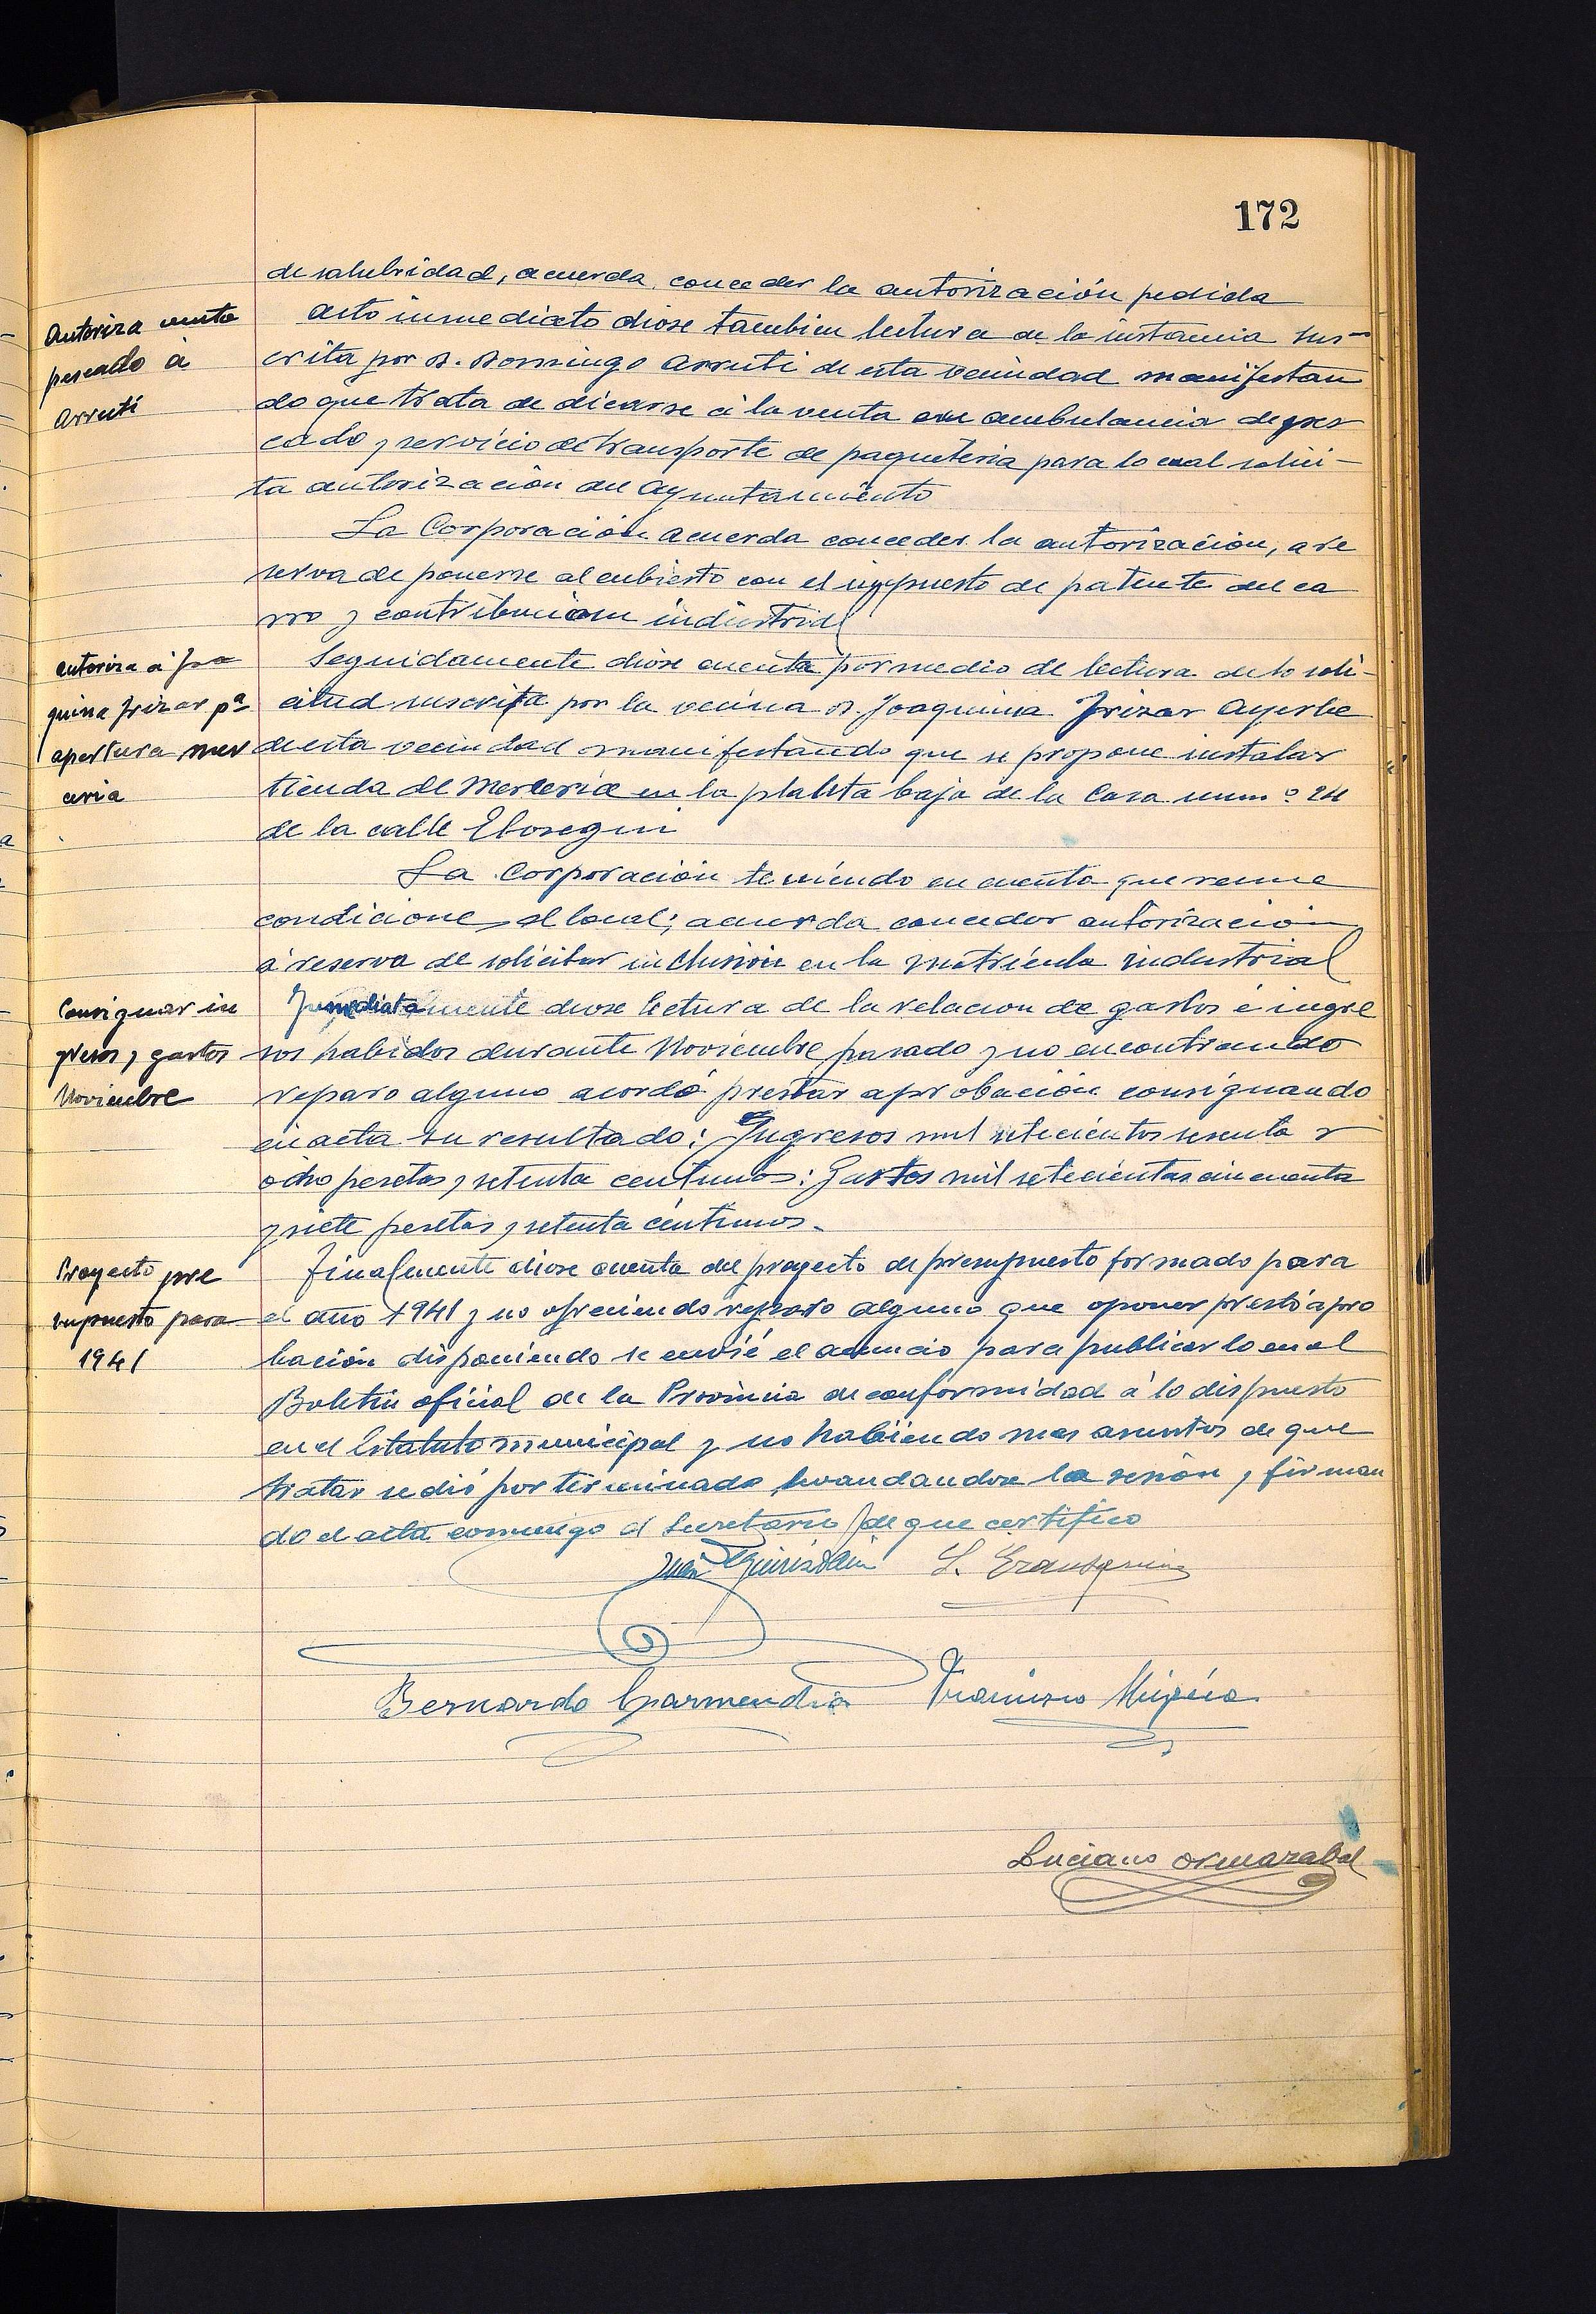 172
de salubridad, acuerda conceder la autorización pedida
Autoriza venta
pescado á
Arruti
Acto inmediato diose tambien lectura de la instancia sus-
crita por D. Domingo Arruti de esta vecindad manifestan
do que trata de dicarse á la venta en ambulancia de pes
cado y servicio de transporte de paqueteria para lo cual solici-
ta autorización del Ayuntamiento
La Corporación acuerda conceder la autorización, a re
serva de ponerse al cubierto con el impuesto de patente del ca
rro y contribucion industrial
autoriza á Joa
quina Irizar pª
apertura mer
ceria
Seguidamente diose cuenta por medio de lectura de la soli-
citud suscrita por la vecina D. Joaquina Irizar Ayerbe
de esta vecindad manifestando que se propone instalar
tienda de Merceria en la planta baja de la Casa num º 24
de la calle Elosegui
La Corporación teniendo en cuenta que reune
condicione el local; acuerda conceder autorización
á reserva de solicitar inclusión en la matrícula industrial
Consignar in
gresos y gastos
Noviembre
Inmediatamente diose lectura de la relacion de gastos é ingre
sos habidos durante Noviembre pasado y no encontrando
reparo alguno acordó prestar aprobación consignando
en acta su resultado: Ingresos mil setecientos sesenta y
ocho pesetas y setenta centimos: Gastos mil setecientas cincuenta
y siete pesetas y setenta céntimos.
Proyecto pre
supuesto para
1941
Finalmente diose cuenta del proyecto de presupuesto formado para
el año 1941 y no ofreciendo reparo alguno que oponer prestó apro
bación disponiendo se envié el anuncio para publicarlo en el
Boletin oficial de la Provincia de conformidad á lo dispuesto
en el Estatuto municipal y no habiendo mas asuntos de que
tratar se dió por terminada levandandose la sesión y firman
do el acta conmigo el Secretario de que certifico
Juan
Bernardo Garmendia Francisco
Luciano Ormazabal